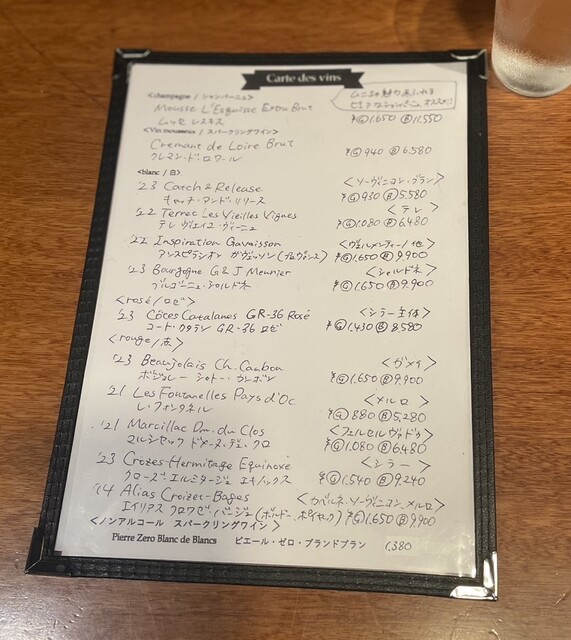 Carte des vins
<champagne / シャンパーニュ>
ムニエの魅力あふれる
ピュアなシャンパーニュ、オススメ!!
Mousse L'Esquisse Extra Brut
ムッセ レスキス ¥Ⓖ1,650 Ⓑ11,550
<Vin mousseux / スパークリングワイン>
Crémant de Loire Brut
クレマン・ド・ロワール ¥Ⓖ940 Ⓑ6,580
<blanc / 白>
'23 Catch & Release <ソーヴィニヨン・ブラン>
キャッチ・アンド・リリース ¥Ⓖ930 Ⓑ5,580
'22 Terret Les Vieilles Vignes <テレ>
テレ ヴィエイユ・ヴィーニュ ¥Ⓖ1,080 Ⓑ6,480
'22 Inspiration Gavaisson <ヴェルメンティーノ他>
アンスピラシオン ガヴェッソン (プロヴァンス) ¥Ⓖ1,650 Ⓑ9,900
'23 Bourgogne G & J Meunier <シャルドネ>
ブルゴーニュ・シャルドネ ¥Ⓖ1,650 Ⓑ9,900
<rosé / ロゼ>
'23 Côtes Catalanes GR-36 Rosé <シラー主体>
コート・カタラン GR-36 ロゼ ¥Ⓖ1,430 Ⓑ8,580
<rouge / 赤>
'23 Beaujolais Ch. Cambon <ガメイ>
ボジョレー シャトー・カンボン ¥Ⓖ1,650 Ⓑ9,900
'21 Les Fontanelles Pays d'Oc <メルロ>
レ・フォンタネル ¥Ⓖ880 Ⓑ5,280
'21 Marcillac Dm. du Clos <フェルセルヴァドゥ>
マルシヤック ドメーヌ・デュ・クロ ¥Ⓖ1,080 Ⓑ6,480
'23 Crozes-Hermitage Equinoxe <シラー>
クローズ・エルミタージュ エキノックス ¥Ⓖ1,540 Ⓑ9,240
'14 Alias Croizet-Bages <カベルネ・ソーヴィニヨン、メルロ>
エイリアス クロワゼ・バージュ (ボルドー、ポイヤック) ¥Ⓖ1,650 Ⓑ9,900
<ノンアルコール スパークリングワイン>
Pierre Zero Blanc de Blancs ピエール・ゼロ・ブランドブラン 1,380